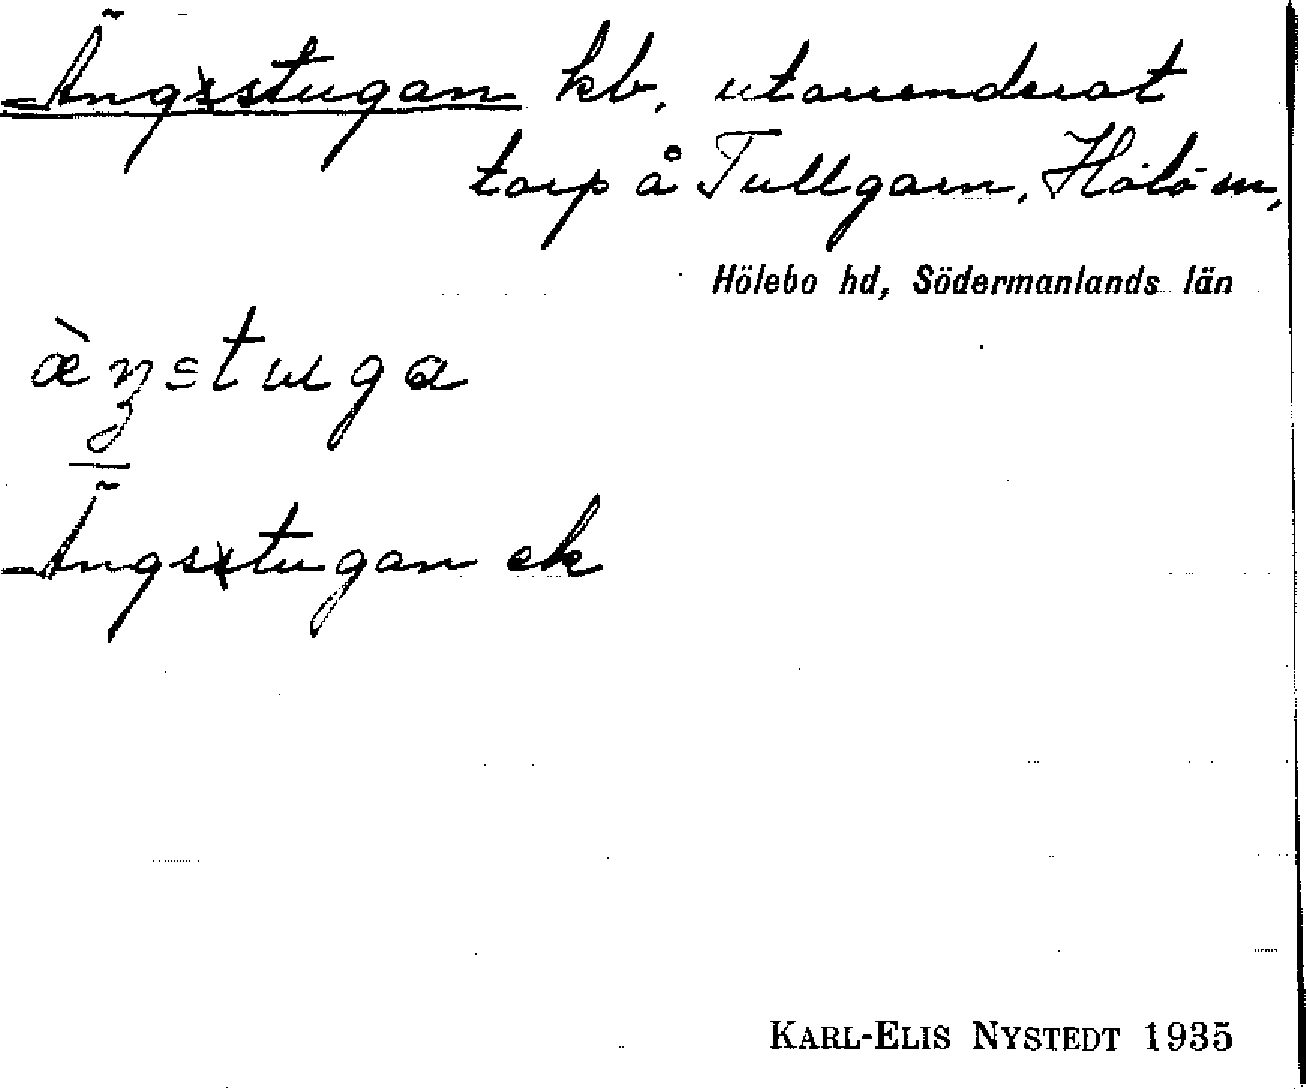 Ängsstugan kb, utarrenderat
torp å Tullgarn, Hölö sn,
Hölebo hd, Södermanlands län
Ängsstugan ek
KARL-ELIS NYSTEDT 1935